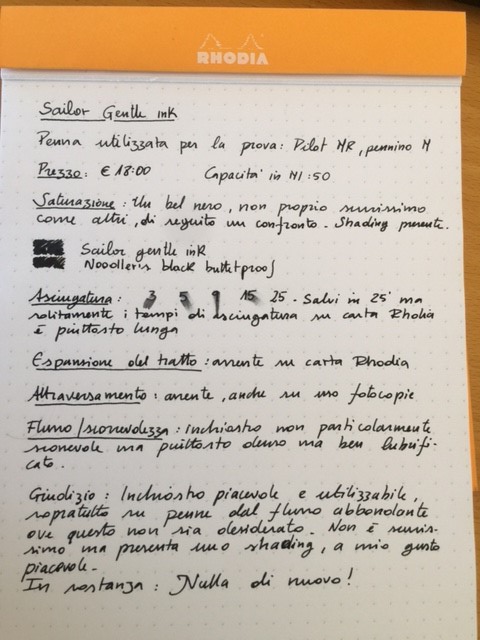 RHODIA
Sailor Gentle ink
Penna utilizzata per la prova: Pilot MR, pennino M
Prezzo: € 18:00 Capacità in Ml: 50
Saturazione: Un bel nero, non proprio nerissimo
come altri, di seguito un confronto. Shading presente.
Sailor gentle ink
Noodler's black bulletproof
Asciugatura: 3 5 9 15 25. Salvi in 25' ma
solitamente i tempi di asciugatura su carta Rhodia
è piuttosto lunga
Espansione del tratto: assente su carta Rhodia
Attraversamento: assente, anche su uso fotocopie
Flusso/scorrevolezza: Inchiostro non particolarmente
scorrevole ma piuttosto denso ma ben lubrifi-
cato.
Giudizio: Inchiostro piacevole e utilizzabile,
sopratutto su penne dal flusso abbondante
ove questo non sia desiderato. Non è neris-
simo ma presenta uno shading, a mio gusto
piacevole.
In sostanza: Nulla di nuovo!